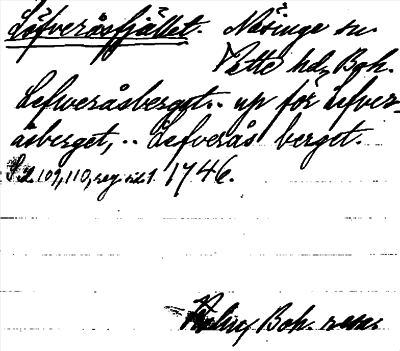 Löfveråsfjället. Näsinge sn.
Vette hd, Boh.
Lefweråsberget.. up för Lefver-
åsberget, .. Lefverås berget.
S. 109, 110, reg. sid. 1. 1746.
Kalm, Boh. resa.